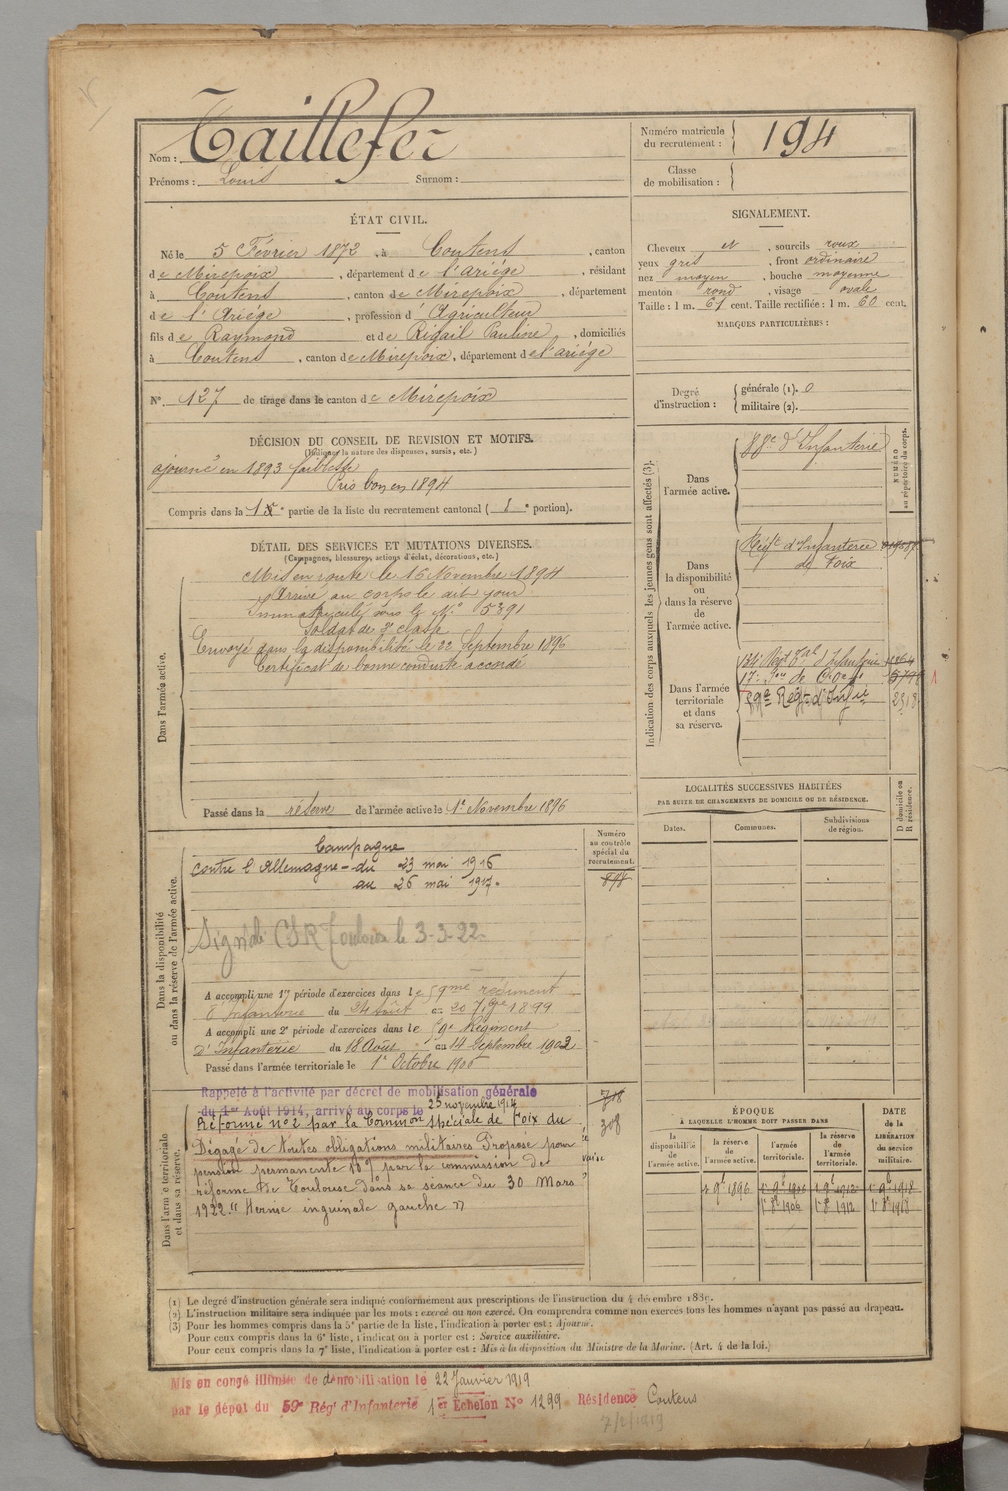 Nom : Taillefer
Prénoms : Louis Surnom :
Numéro matricule du recrutement : 194
Classe de mobilisation :
ÉTAT CIVIL.
Né le 5 Février 1872, à Coutens, canton
de Mirepoix, département de l'Ariége, résidant
à Coutens, canton de Mirepoix, département
de l'Ariége, profession d'Agriculteur
fils de Raymond et de Rigail Pauline, domiciliés
à Coutens, canton de Mirepoix, département de l'ariége
N° 127 de tirage dans le canton de Mirepoix
SIGNALEMENT.
Cheveux et, sourcils roux
yeux gris, front ordinaire
nez moyen, bouche moyenne
menton rond, visage ovale
Taille : 1 m. 61 cent. Taille rectifiée : 1 m. 60 cent.
MARQUES PARTICULIÈRES :
Degré d'instruction : générale (1). 0
militaire (2).
DÉCISION DU CONSEIL DE REVISION ET MOTIFS.
(Indiquer la nature des dispenses, sursis, etc.)
ajourné en 1893 faiblesse
Pris bon en 1894
Compris dans la 1re partie de la liste du recrutement cantonal ( portion).
DÉTAIL DES SERVICES ET MUTATIONS DIVERSES.
(Campagnes, blessures, actions d'éclat, décorations, etc.)
Dans l'armée active.
Mis en route le 16 Novembre 1894
Arrivé au corps le dit jour
Immatriculé sous le N° 5391
Soldat de 2e classe
Envoyé dans la disponibilité le 22 Septembre 1896
Certificat de bonne conduite accordé
Passé dans la réserve de l'armée active le 1er Novembre 1896
Indication des corps auxquels les jeunes gens sont affectés (3).
NUMÉRO au répertoire du corps.
Dans l'armée active.
88e d'Infanterie
Dans la disponibilité ou dans la réserve de l'armée active.
Régt d'Infanterie
de Foix
Dans l'armée territoriale et dans sa réserve.
134e Régt d'Infanterie
17e
59e Régt d'Infie 2318
LOCALITÉS SUCCESSIVES HABITÉES
PAR SUITE DE CHANGEMENTS DE DOMICILE OU DE RÉSIDENCE.
Dates. Communes. Subdivisions de région. D domicile ou R résidence.
Dans la disponibilité ou dans la réserve de l'armée active.
Numéro au contrôle spécial du recrutement.
898
Campagne
contre l'Allemagne - du 23 mai 1916
au 26 mai 1917.
Signalé CSR Toulouse le 3-3-22
A accompli une 1re période d'exercices dans le 59me régiment
d'Infanterie du 24 août au 20 7bre 1899
A accompli une 2e période d'exercices dans le 59e Régiment
d'Infanterie du 18 Août au 14 Septembre 1902
Passé dans l'armée territoriale le 1er Octobre 1906
Dans l'armée territoriale et dans sa réserve.
Rappelé à l'activité par décret de mobilisation générale
du 1er Août 1914, arrivé au corps le 25 novembre 1914
718
308
Réformé n°2 par la Common spéciale de Foix du
Dégagé de toutes obligations militaires Proposé pour
pension permanente 10% par la commission de
réforme de Toulouse dans sa séance du 30 Mars
1922 "Hernie inguinale gauche"
ÉPOQUE
À LAQUELLE L'HOMME DOIT PASSER DANS
DATE DE LA LIBÉRATION du service militaire.
la disponibilité de l'armée active. la réserve de l'armée active. l'armée territoriale. la réserve de l'armée territoriale.
1er 9bre 1896 1er 9bre 1906 1er 9bre 1912 1er 9bre 1918
1er 8bre 1906 1er 8bre 1912 1er 8bre 1918
(1) Le degré d'instruction générale sera indiqué conformément aux prescriptions de l'instruction du 4 décembre 1889.
(2) L'instruction militaire sera indiquée par les mots : exercé ou non exercé. On comprendra comme non exercés tous les hommes n'ayant pas passé au drapeau.
(3) Pour les hommes compris dans la 5e partie de la liste, l'indication à porter est : Ajourné.
Pour ceux compris dans la 6e liste, l'indication à porter est : Service auxiliaire.
Pour ceux compris dans la 7e liste, l'indication à porter est : Mis à la disposition du Ministre de la Marine. (Art. 4 de la loi.)
Mis en congé illimité de démobilisation le 22 Janvier 1919
par le dépôt du 59e Régt d'Infanterie 1er Échelon N° 1299 Résidence Coutens
7/2/1919